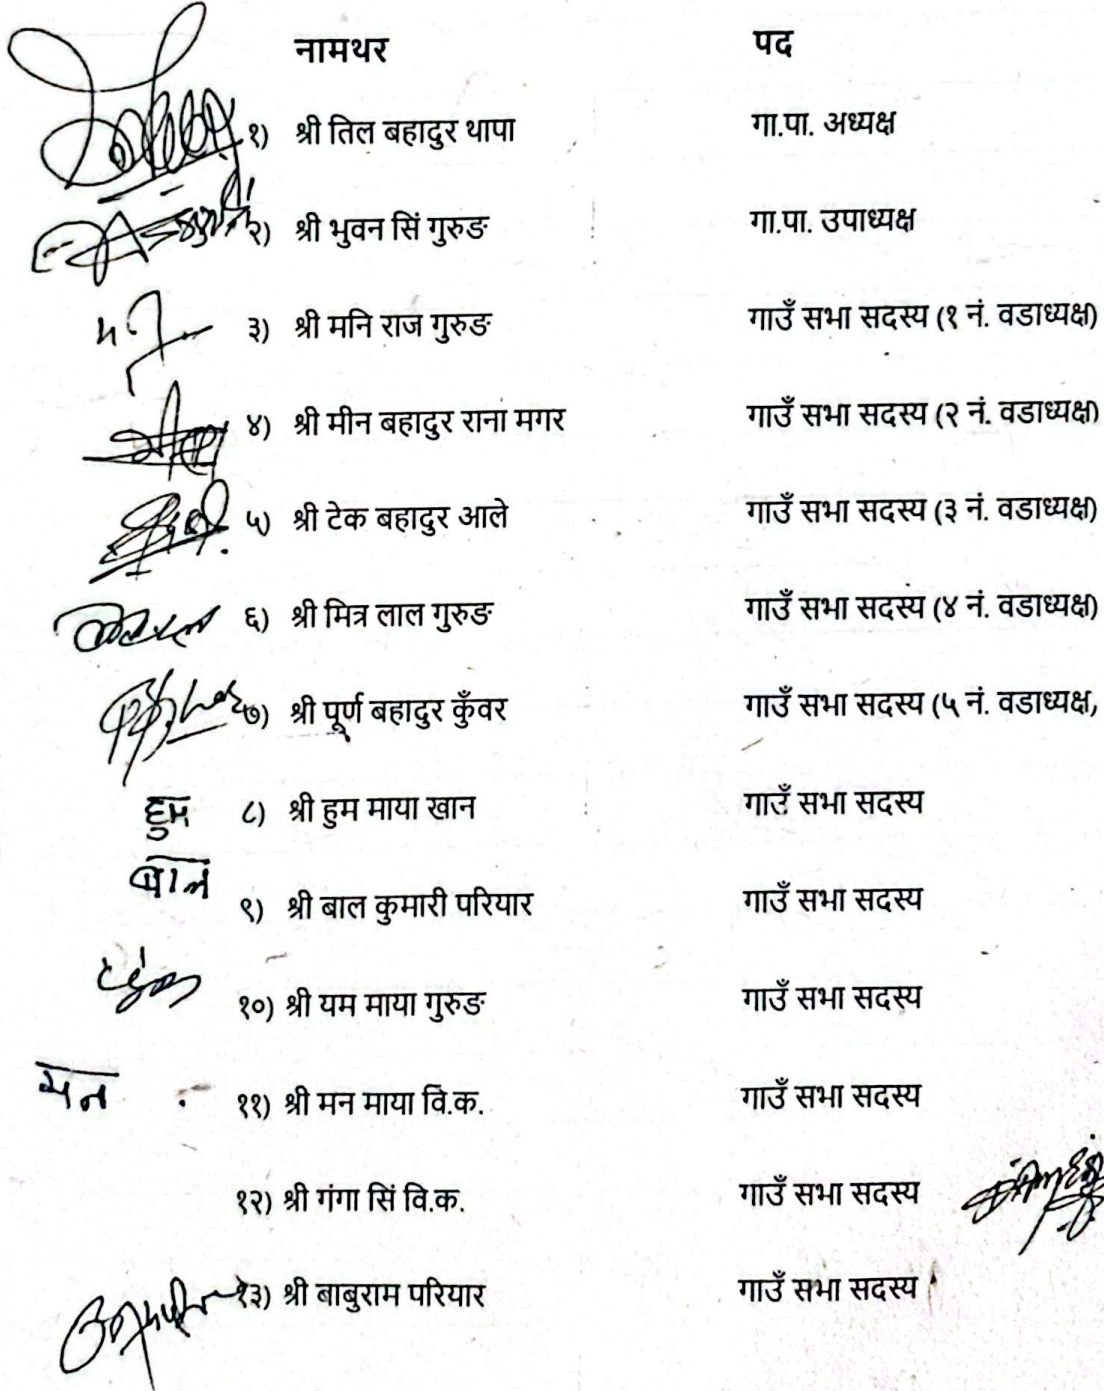 नामथर पद
१) श्री तिल बहादुर थापा गा.पा. अध्यक्ष
२) श्री भुवन सिं गुरुङ गा.पा. उपाध्यक्ष
३) श्री मनि राज गुरुङ गाउँ सभा सदस्य (१ नं. वडाध्यक्ष)
४) श्री मीन बहादुर राना मगर गाउँ सभा सदस्य (२ नं. वडाध्यक्ष)
५) श्री टेक बहादुर आले गाउँ सभा सदस्य (३ नं. वडाध्यक्ष)
६) श्री मित्र लाल गुरुङ गाउँ सभा सदस्य (४ नं. वडाध्यक्ष)
७) श्री पूर्ण बहादुर कुँवर गाउँ सभा सदस्य (५ नं. वडाध्यक्ष,
हुम ८) श्री हुम माया खान गाउँ सभा सदस्य
बाल ९) श्री बाल कुमारी परियार गाउँ सभा सदस्य
१०) श्री यम माया गुरुङ गाउँ सभा सदस्य
मन ११) श्री मन माया वि.क. गाउँ सभा सदस्य
१२) श्री गंगा सिं वि.क. गाउँ सभा सदस्य
१३) श्री बाबुराम परियार गाउँ सभा सदस्य